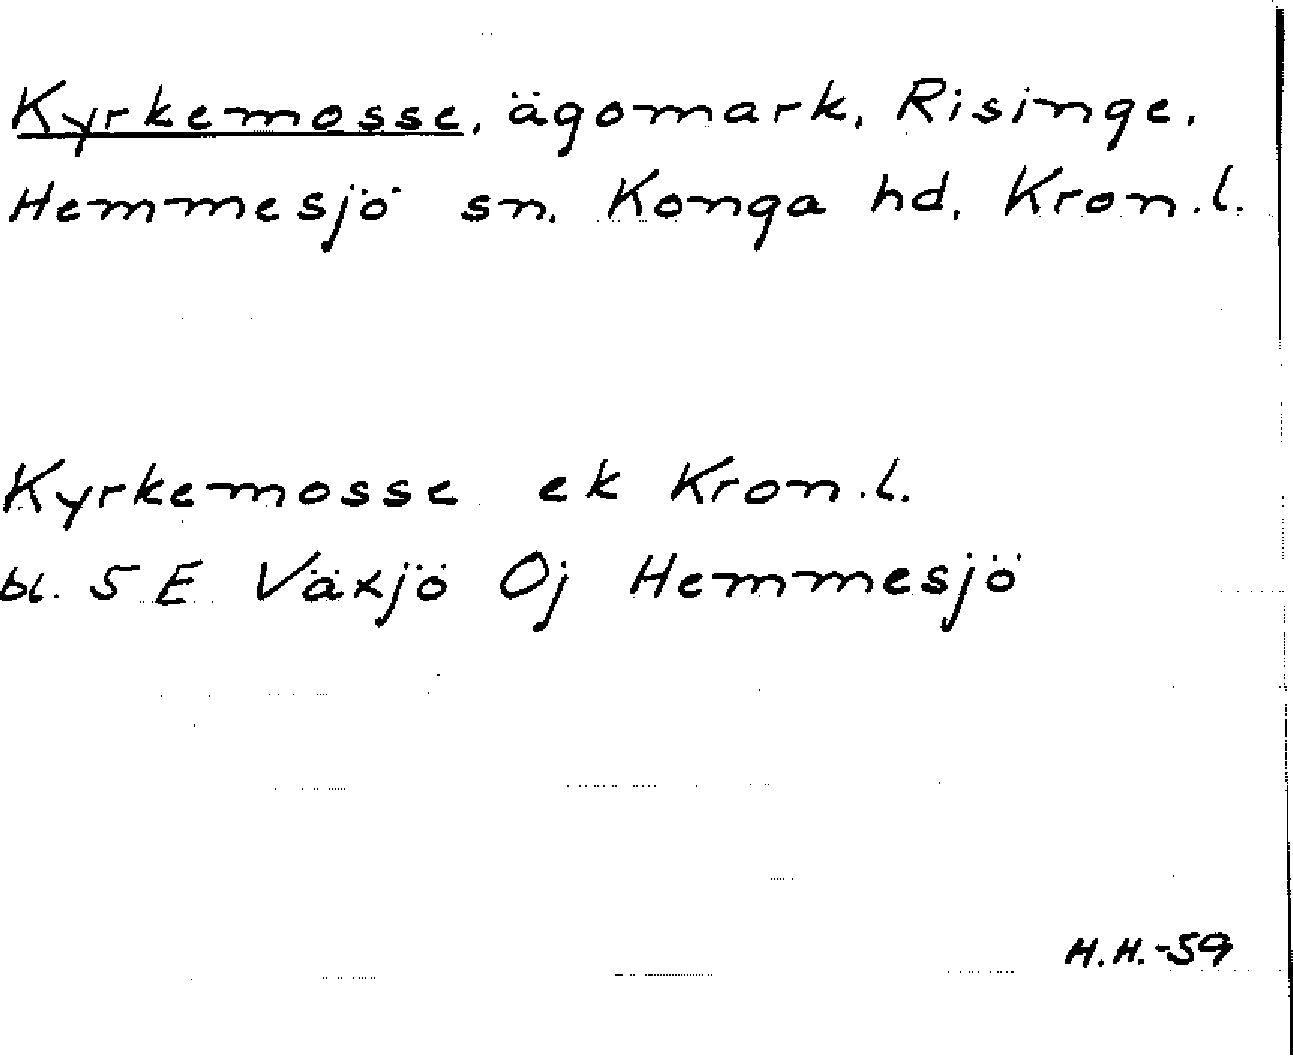 Kyrkemosse, ägomark, Risinge,
Hemmesjö sn. Konga hd, Kron.l.
Kyrkemosse ek Kron.l.
bl. 5 E Växjö Oj Hemmesjö
H.H.-59